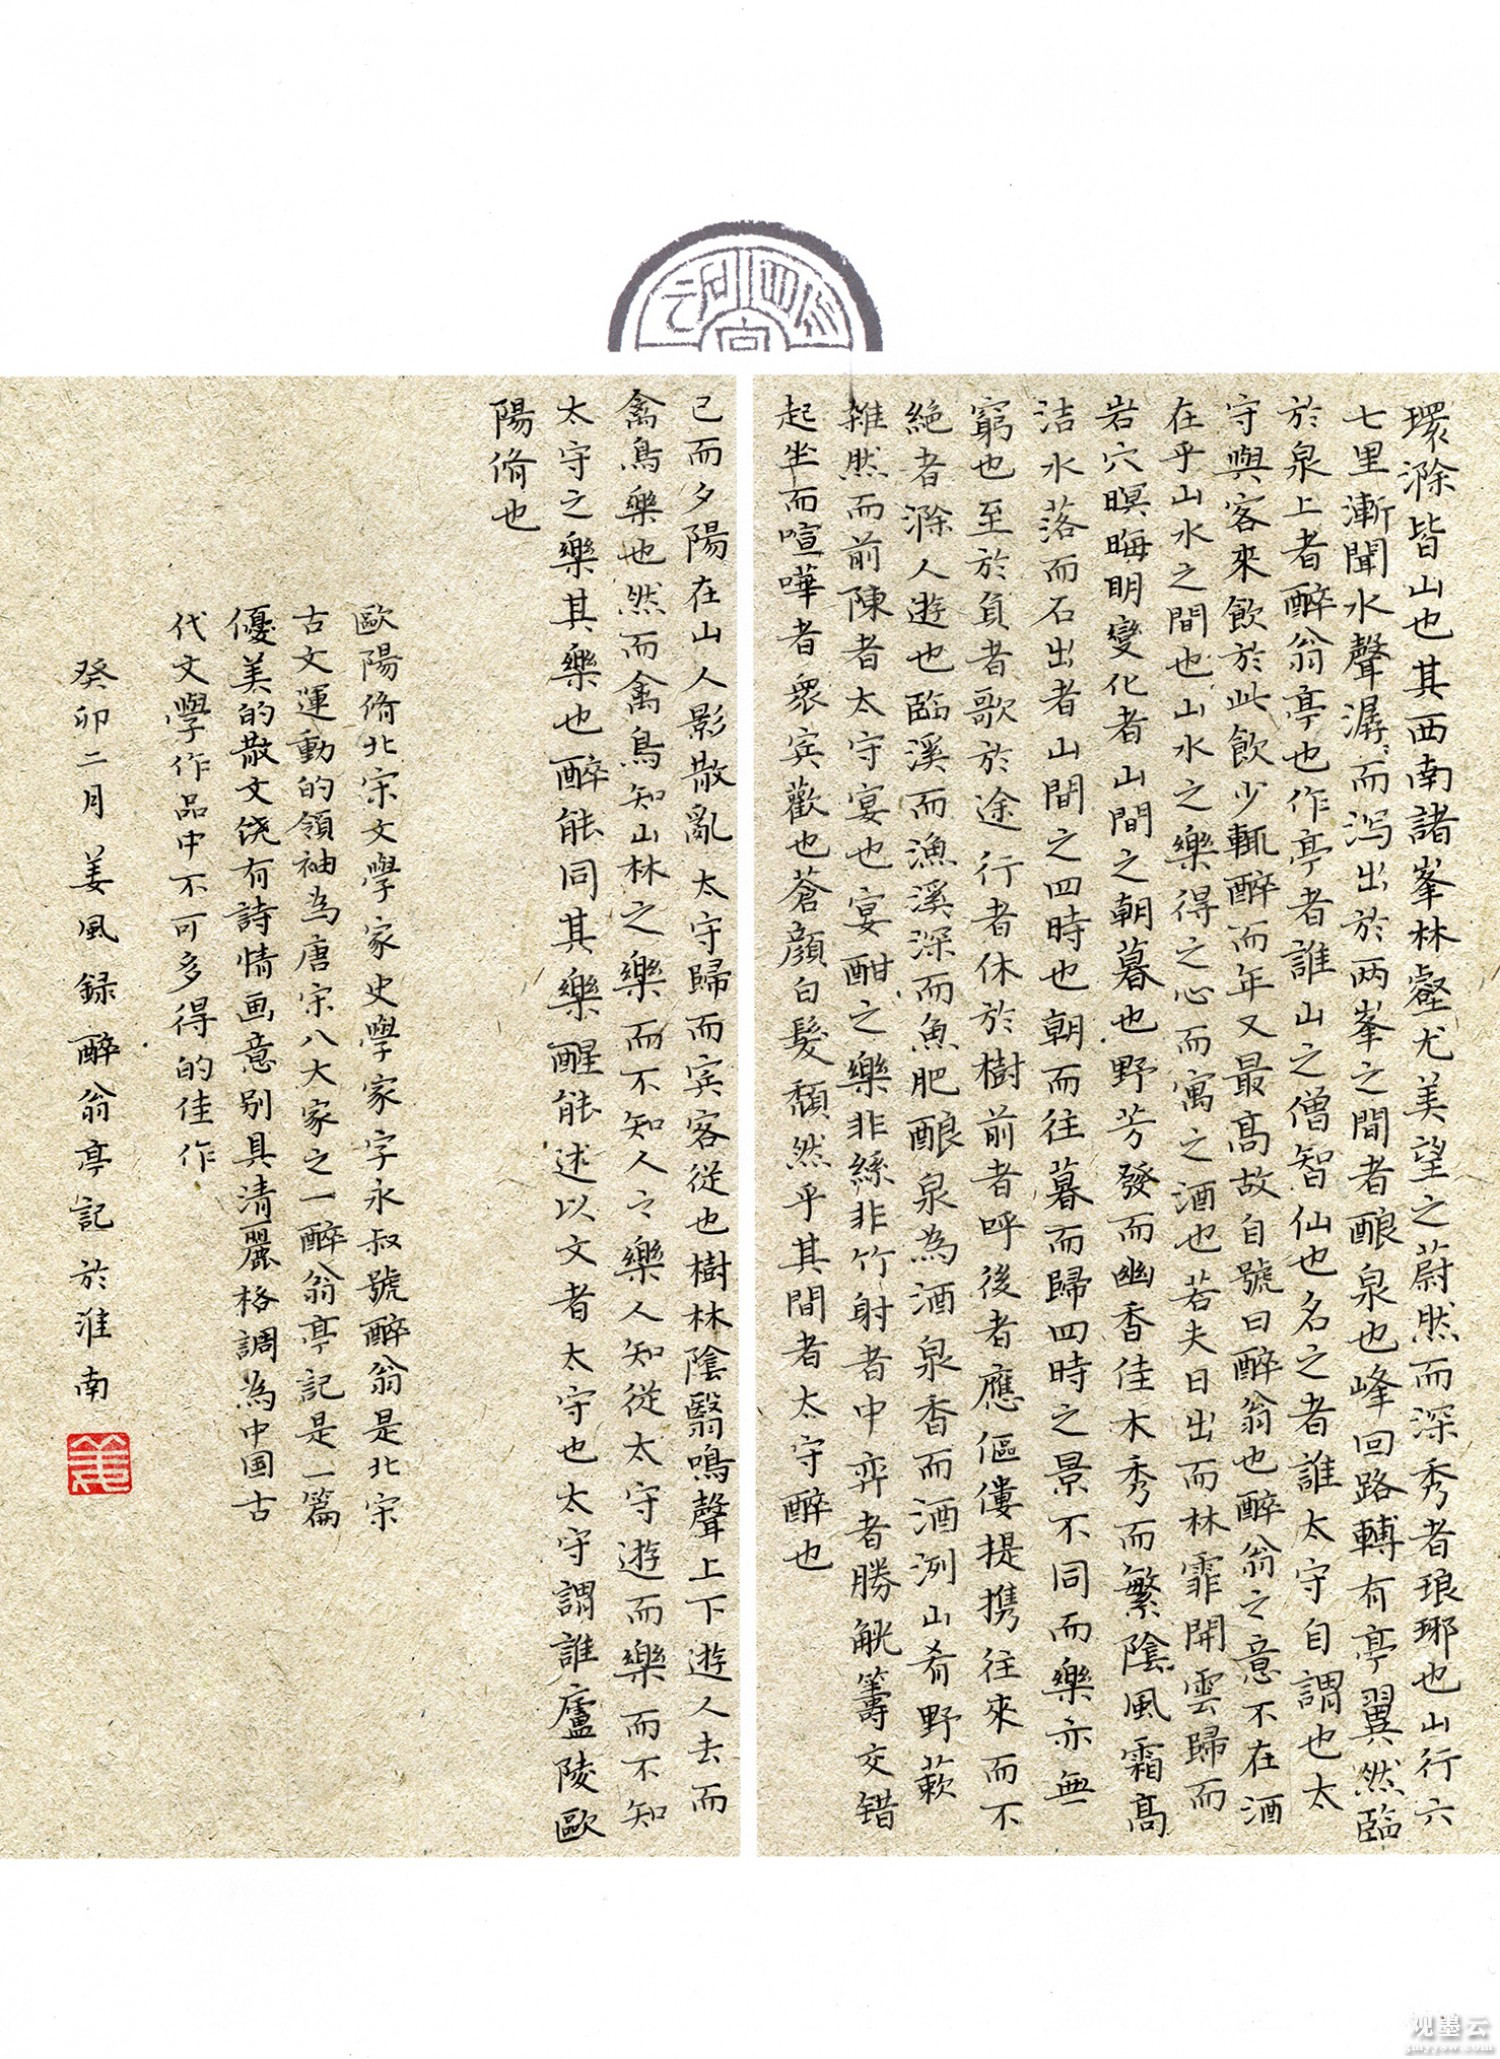 環滁皆山也其西南諸峯林壑尤美望之蔚然而深秀者琅琊也山行六
七里漸聞水聲潺〻而瀉出於兩峯之間者酿泉也峰回路轉有亭翼然臨
於泉上者醉翁亭也作亭者誰山之僧智仙也名之者誰太守自謂也太
守與客來飲於此飲少輒醉而年又最高故自號曰醉翁也醉翁之意不在酒
在乎山水之間也山水之樂得之心而寓之酒也若夫日出而林霏開雲歸而
岩穴暝晦明變化者山間之朝暮也野芳發而幽香佳木秀而繁陰風霜高
洁水落而石出者山間之四時也朝而往暮而歸四時之景不同而樂亦無
窮也至於負者歌於途行者休於樹前者呼後者應傴僂提携往來而不
絶者滁人遊也臨溪而漁溪深而魚肥酿泉為酒泉香而酒洌山肴野蔌
雑然而前陳者太守宴也宴酣之樂非絲非竹射者中弈者勝觥籌交错
起坐而喧嘩者衆宾歡也蒼顔白髮頽然乎其間者太守醉也
已而夕陽在山人影散亂太守歸而宾客從也樹林陰翳鳴聲上下遊人去而
禽鳥樂也然而禽鳥知山林之樂而不知人之樂人知從太守遊而樂而不知
太守之樂其樂也醉能同其樂醒能述以文者太守也太守謂誰廬陵歐
陽脩也
歐陽脩北宋文學家史學家字永叔號醉翁是北宋
古文運動的領袖為唐宋八大家之一醉翁亭記是一篇
優美的散文饶有詩情画意别具清麗格調為中国古
代文學作品中不可多得的佳作
癸卯二月姜風録醉翁亭記於淮南
姜
观墨云